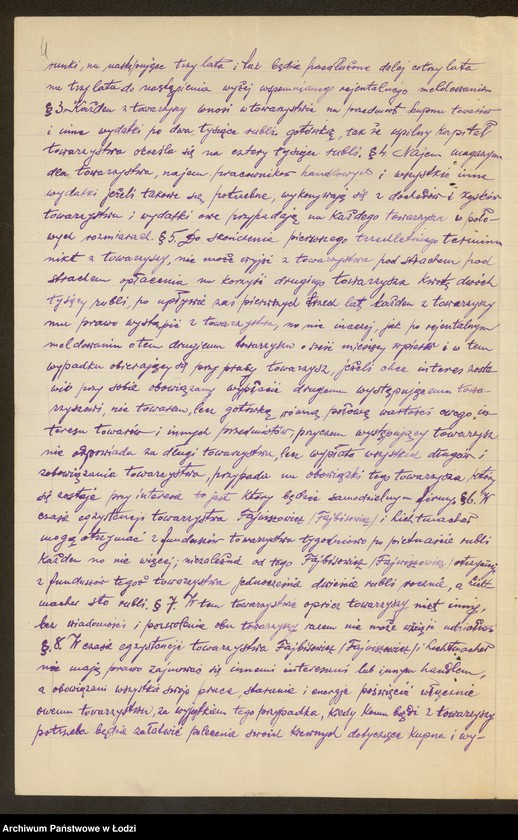 4
runki, na następujące trzy lata i tak będzie przedłużone dalej co trzy lata
na trzy lata do nastąpienia wyżej wspomnianego rejentalnego meldowania
§ 3. Każden z towarzyszy wnosi w towarzystwo na przedmiot kupna towarów
i inne wydatki po dwa tysiące rubli gotówką, tak że wspólny kapitał
towarzystwa określa się na cztery tysiące rubli. § 4. Najem magazynu
dla towarzystwa, najem pracowników handlowych i wszystkie inne
wydatki jeżeli takowe są potrzebne, wykonywają się z dochodów i zysków
towarzystwa i wydatki owe przypadają na każdego towarzysza w poło-
wych rozmiarach. § 5. Do skończenia pierwszego trzechletniego terminu
nikt z towarzyszy, nie może wyjść z towarzystwa pod strachem pod
strachem opłacenia na korzyść drugiego towarzysza kwotę dwóch
tysięcy rubli, po upływie zaś pierwszych trzech lat każden z towarzyszy
ma prawo wystąpić z towarzystwa, no nie inaczej, jak po rejentalnym
meldowaniu o tem drugiemu towarzyszu sześć miesięcy wpierw i w tem
wypadku obierający się przy pracy towarzysz, jeżeli chce interes zosta-
wić przy sobie obowiązany wypłacić drugemu występującemu towa-
rzyszowi, nie towarem, lecz gotówką równą połową wartości owego in-
teresu towarów i innych przedmiotów, przyczem występujący towarzysz
nie odpowiada za długi towarzystwa, lecz wypłata wszystkich długów i
zobowiązania towarzystwa, przypada na obowiązki tego towarzysza, który
się zostaje przy interesie to jest który będzie samodzielnym firmy. § 6. W
czasie egzystencji towarzystwa Fajwisowicz /Fajbisowicz/ i Lichtmacher
mogą otrzymać z funduszów towarzystwa tygodniowo po piętnaście rubli
każden no nie więcej; niezależnie od tego Fajbisowicz /Fajwisowicz/ otrzymuje
z funduszów tegoż towarzystwa jednocześnie dwieście rubli rocznie, a Licht-
macher sto rubli. § 7. W tem towarzystwie oprócz towarzyszy nikt inny,
bez wiadomości i pozwolenia obu towarzyszy razem nie może wziąść udziału
§ 8. W czasie egzystencji towarzystwa Fajbisowicz /Fajwisowicz/ i Lichtmacher
nie mają prawa zajmować się innemi interesami lub innym handlem,
a obowiązani wszystkie swoje prace, starania i energję poświęcić włącznie
owemu towarzystwu, za wyjątkiem tego przypadku, kiedy komu bądź z towarzyszy
potrzeba będzie załatwić polecenia swoich krewnych dotyczące kupna i wy-
Archiwum Państwowe w Łodzi